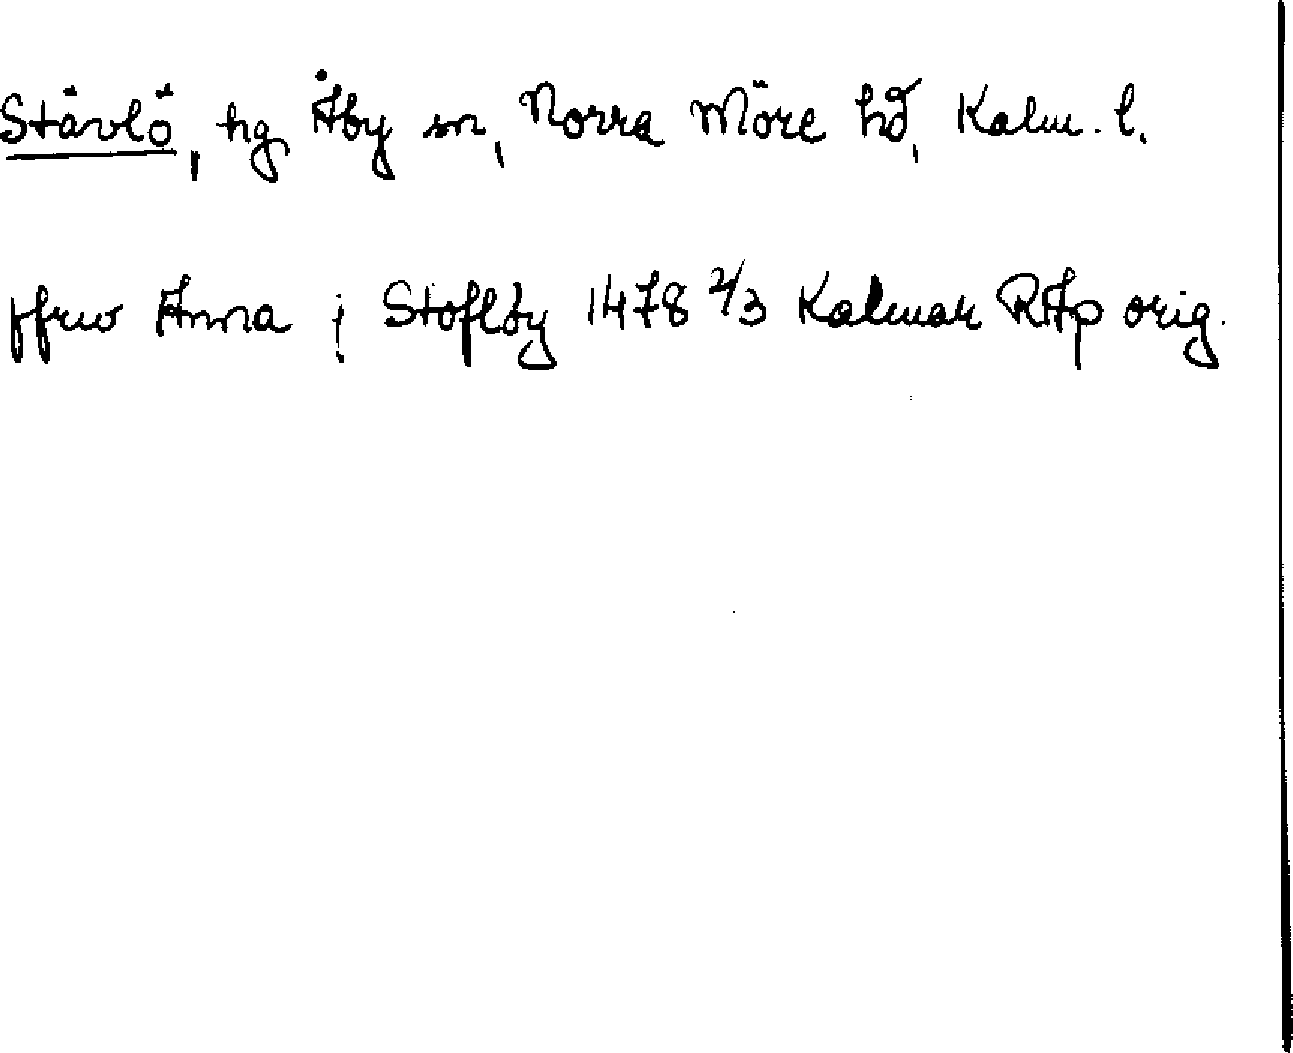 Stävlö, hg, Åby sn, Norra Möre hd, Kalm. l.
ffrw Anna i Stoflöy 1478 2/3 Kalmar RAp orig.